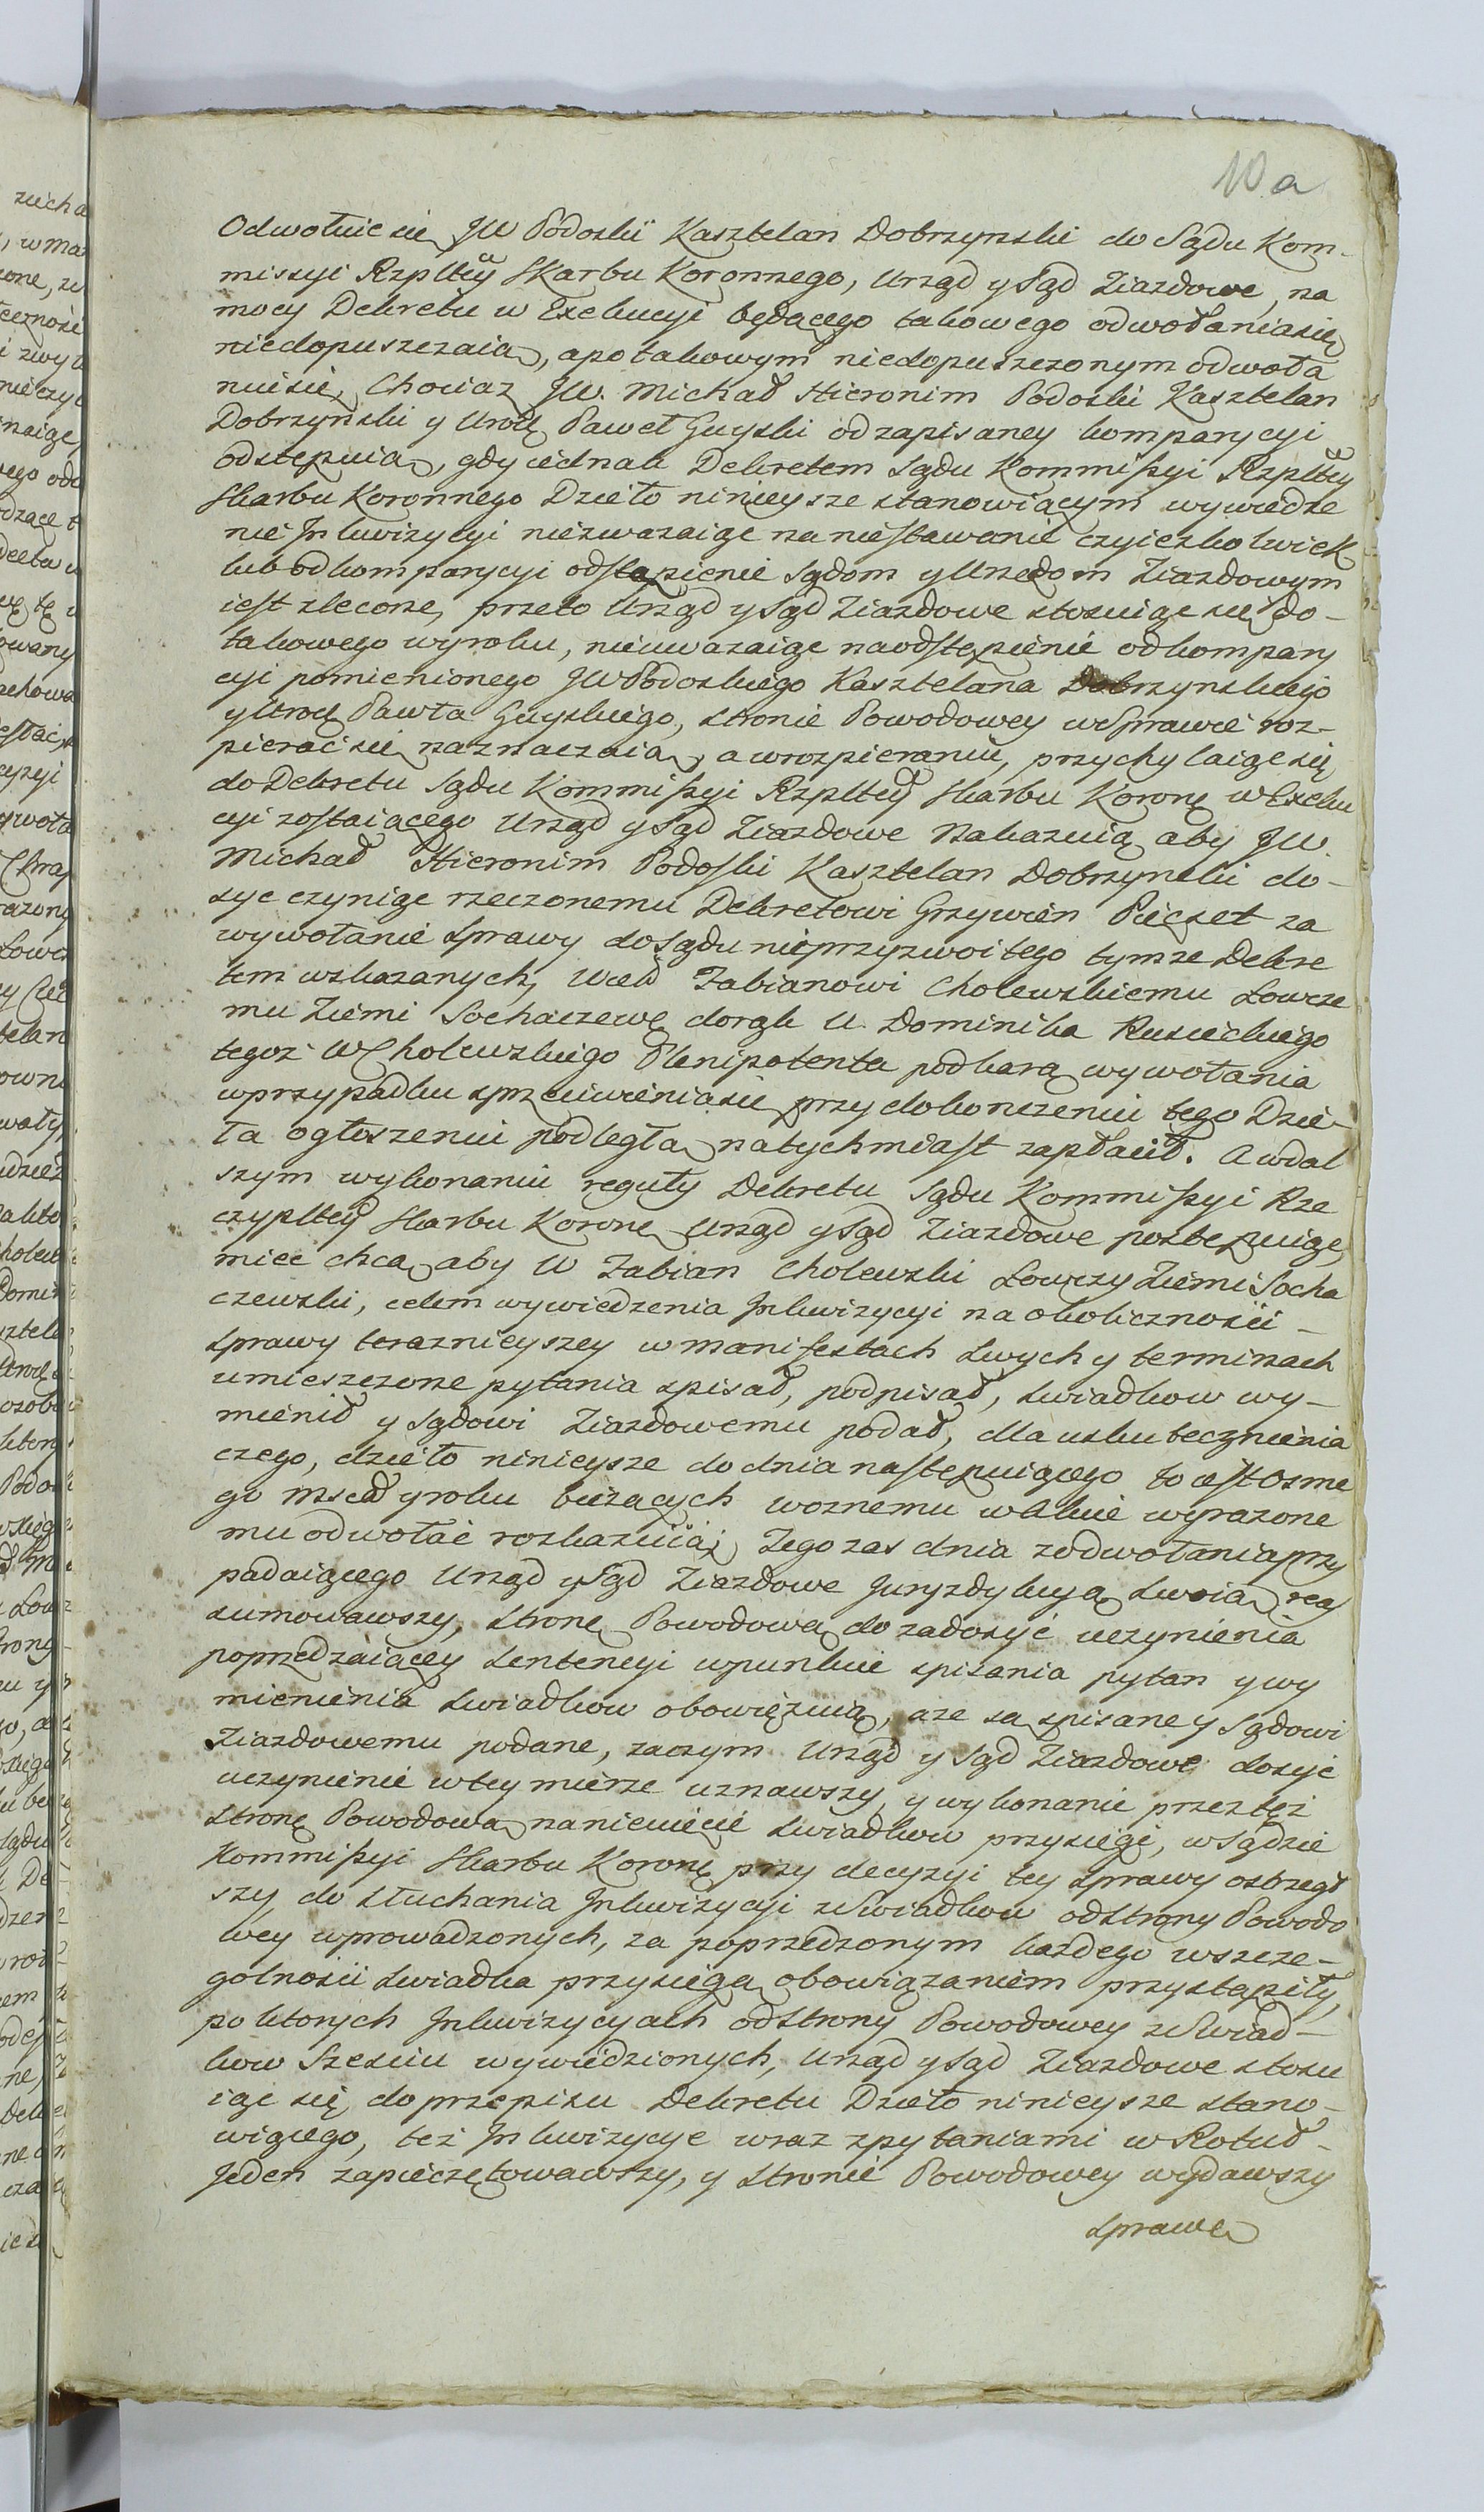 10.a
Odwołuie się JW Podoski Kasztelan Dobrzynski do Sądu Kom-
missyi Rzpltey Skarbu Koronnego, Urząd y Sąd Ziazdowe, na
mocy Dekretu w Exekucyi będącego takowego odwołania się
niedopuszczaią, a po takowym niedopuszczonym odwoła
niu się, Chociaz JW. Michał Hieronim Podoski Kasztelan
Dobrzyński y Urodz Paweł Guyski od zapisaney komparycyi
odstępuią, gdy iednak Dekretem Sądu Kommissyi Rzpltey
Skarbu Koronnego Dzieło ninieysze stanowiącym wywiedze
nie Inkwizycyi niezwazaiąc na niestawanie czyiezkolwiek
lub od komparycyi odstąpienie Sądom y Urzędom Ziazdowym
iest zlecone, przeto Urząd y Sąd Ziazdowe stosuiąc się do-
takowego wyroku, nieuwazaiąc na odstępienie od kompary
cyi pomienionego JW Podoskiego Kasztelana Dobrzynskiego
y Urodz Pawła Guyskiego, stronie Powodowey w Sprawie roz-
pierać się naznaczaią, a w rozpieraniu, przychylaiąc się
do Dekretu Sądu Kommissyi Rzpltey Skarbu Koronę w Exeku
cyi zostaiącego Urząd y Sąd Ziazdowe Nakazuią aby JW.
Michał Hieronim Podoski Kasztelan Dobrzynski do-
syc czyniąc rzeczonemu Dekretowi Grzywien Pięćset za
wywołanie Sprawy do Sądu nieprzyzwoitego tymze Dekre
tem wskazanych, Fabianowi Cholewskiemu Łowcze
mu Ziemi Sochaczewę do rąk U. Dominika Rusieckiego
tegoż W Cholewskiego Plenipotenta pod karą wywołania
w przypadku sprzeciwienia się przy dokonczeniu tego Dzie-
ła ogłoszeniu podległą natychmiast zapłacił. A w dal
szym wykonaniu reguły Dekretu Sądu Kommissyi Rze
czypltey Skarbu Koronę Urząd y Sąd Ziazdowe postępuiąc,
miec chcą, aby W Fabian Cholewski Łowczy Ziemi Socha
czewski, celem wywiedzenia Inkwizycyi na okolicznosci -
Sprawy teraznieyszey w manifestach swych y terminach
umieszczone pytania spisał, podpisał, swiadkow wy-
mienił y Sądowi Ziazdowemu podał, dla uskutecznienia
czego, dzieło ninieysze do dnia następuiącego to iest Osme
go y roku biezących woznemu w Akcie wyrazone
mu odwołać rozkazuią; Tego zas dnia z odwołania przy
padaiącego Urząd y Sąd Ziazdowe Juryzdykcyą swoią reas
sumowawszy, stronę Powodową do zadosyć uczynienia
poprzedzaiącey Sentencyi w punkcie spisania pytan y wy
mienienia swiadkow obowięzuią, a ze są spisane y Sądowi
Ziazdowemu podane, zaczym Urząd y Sąd Ziazdowe dosyć
uczynienie w tey mierze uznawszy, y wykonanie przez też
stronę Powodową na swiadkow przysięgi, w Sądzie
Kommissyi Skarbu Koronę przy decyzyi tey Sprawy ostrzegł
szy, do słuchania Inkwizycyi z Swiadkow od Strony Powodo
wey wprowadzonych, za poprzedzonym kazdego w szcze-
golnosci swiadka przysięgą obowiązaniem przystąpiły,
po ktorych Inkwizycyach od Strony Powodowey z Swiad-
kow Szesciu wywiedzionych, Urząd y Sąd Ziazdowe stosu
iąc się do przepisu Dekretu Dzieło ninieysze stano-
wiącego, też Inkwizycye wraz z pytaniami w Rotuł-
Jeden zapieczętowawszy, y Stronie Powodowey wydawszy
Sprawę